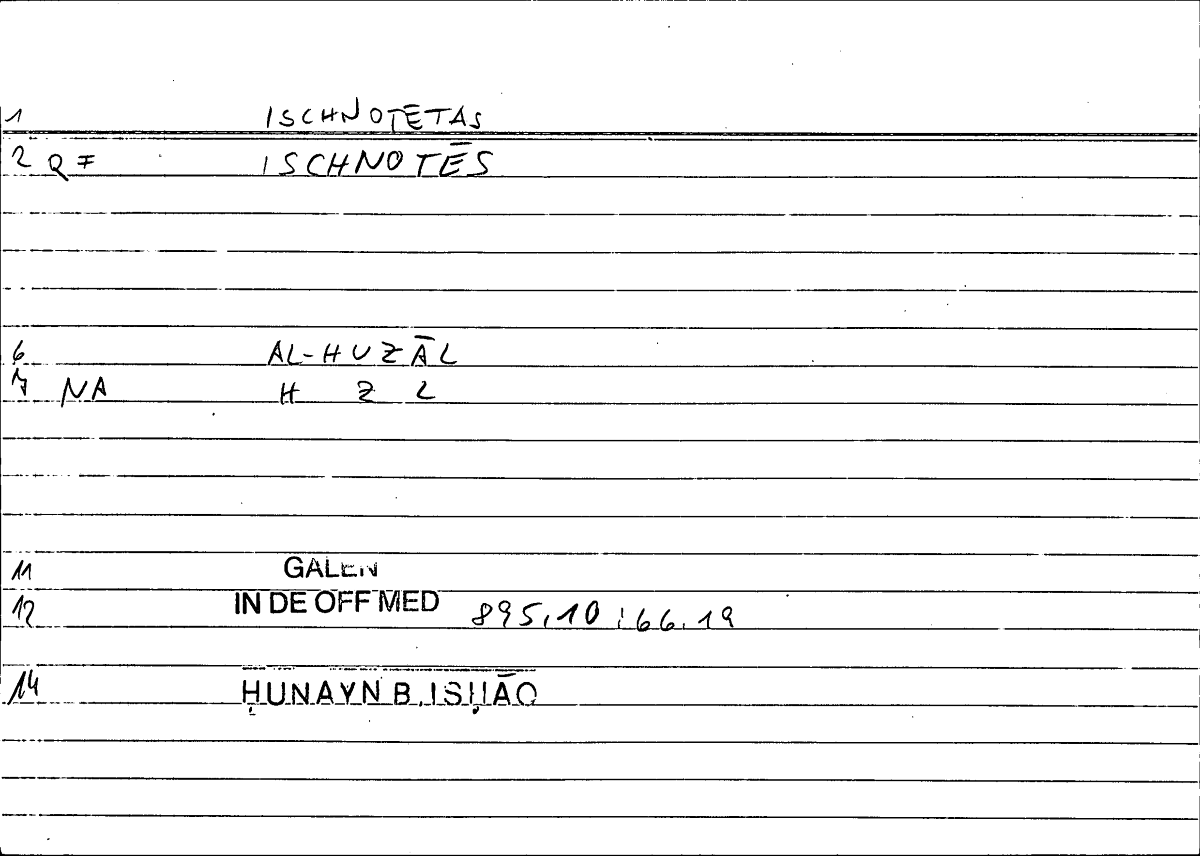 1 ISCHNOTĒTAS
2 Q F ISCHNOTĒS
6 AL-HUZĀL
7 NA H Z L
11 GALEN
12 IN DE OFF MED 895,10 : 66.19
14 ḤUNAYN B. ISḤĀQ